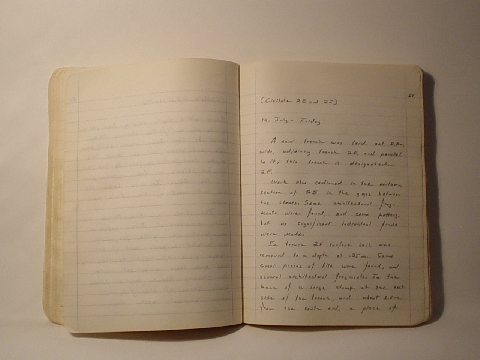 [Civitella 2E and 2F]
14, July - Friday
A new trench was laid out, 2.0 m
wide, adjoining trench 2E and parallel
to it; this trench is designated
2F.
Work also continued in the extreme
section of 2E in the gaps between
the stones. Some architectural frag-
ments were found, and some pottery,
but no significant individual finds
were made.
In trench 2F surface soil was
removed to a depth of .25 m. Some
small pieces of tile were found, and
several architectural fragments. In the
of a large at the east
side of the trench, and about 2.0 m
from the south end, a piece of